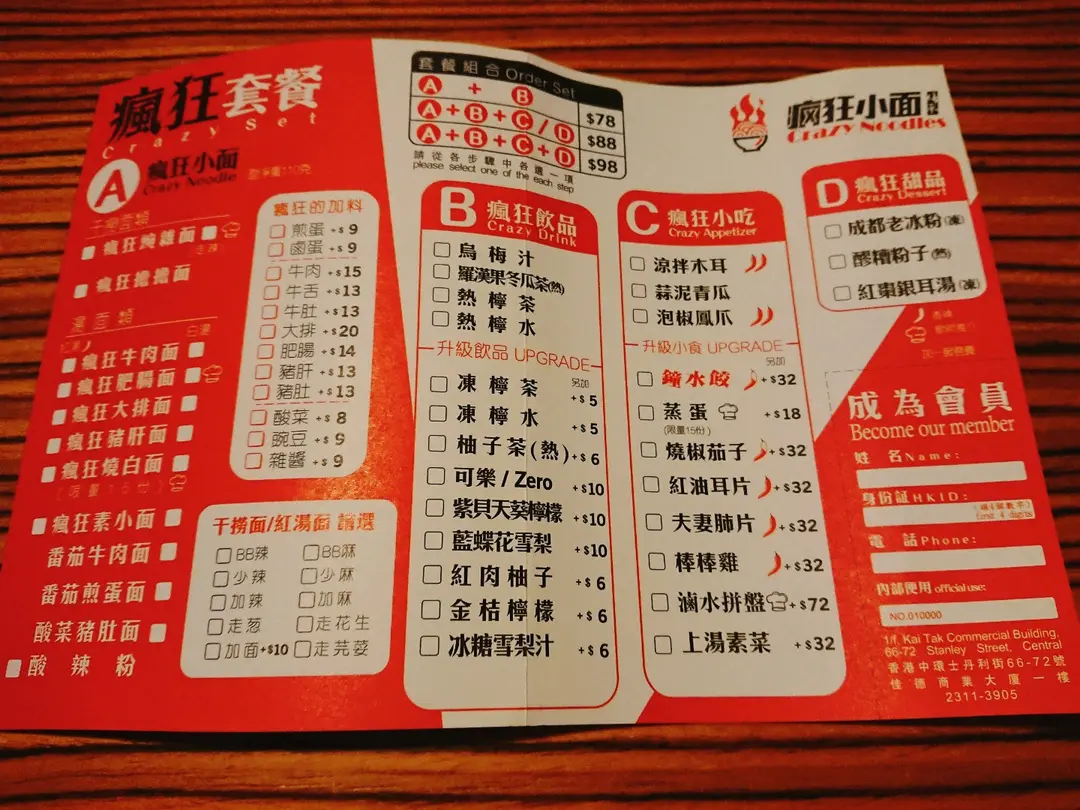 瘋狂套餐
Crazy Set
A 瘋狂小面
Crazy Noodle
瘋狂豌雜面
瘋狂擔擔面
湯面類
白湯
瘋狂牛肉面
瘋狂肥腸面
瘋狂大排面
瘋狂豬肝面
瘋狂燒白面
(限量15份)
瘋狂素小面
番茄牛肉面
番茄煎蛋面
酸菜豬肚面
酸辣粉
瘋狂的加料
煎蛋 +$9
鹵蛋 +$9
牛肉 +$15
牛舌 +$13
牛肚 +$13
大排 +$20
肥腸 +$14
豬肝 +$13
豬肚 +$13
酸菜 +$8
豌豆 +$9
雜醬 +$9
干撈面/紅湯面 請選
BB辣 BB麻
少辣 少麻
加辣 加麻
走葱 走花生
加面+$10 走芫荽
套餐組合 Order Set
A + B $78
A+B+C/D $88
A+B+C+D $98
請從各步驟中各選一項
please select one of the each step
B 瘋狂飲品
Crazy Drink
烏梅汁
羅漢果冬瓜茶(熱)
熱檸茶
熱檸水
升級飲品 UPGRADE
另加
凍檸茶 +$5
凍檸水 +$5
柚子茶(熱) +$6
可樂/Zero +$10
紫貝天葵檸檬 +$10
藍蝶花雪梨 +$10
紅肉柚子 +$6
金桔檸檬 +$6
冰糖雪梨汁 +$6
C 瘋狂小吃
Crazy Appetizer
涼拌木耳
蒜泥青瓜
泡椒鳳爪
升級小食 UPGRADE
另加
鐘水餃 +$32
蒸蛋 +$18
(限量15份)
燒椒茄子 +$32
紅油耳片 +$32
夫妻肺片 +$32
棒棒雞 +$32
滷水拼盤 +$72
上湯素菜 +$32
瘋狂小面
Crazy Noodles
D 瘋狂甜品
Crazy Dessert
成都老冰粉(凍)
醪糟粉子(熱)
紅棗銀耳湯(凍)
香辣
加一服務費
成為會員
Become our member
姓 名Name:
身份証HKID:
(頭4個數字)
first 4 digits
電 話Phone:
內部使用 official use:
NO.010000
1/f, Kai Tak Commercial Building,
66-72 Stanley Street, Central
香港中環士丹利街66-72號
佳德商業大廈一樓
2311-3905